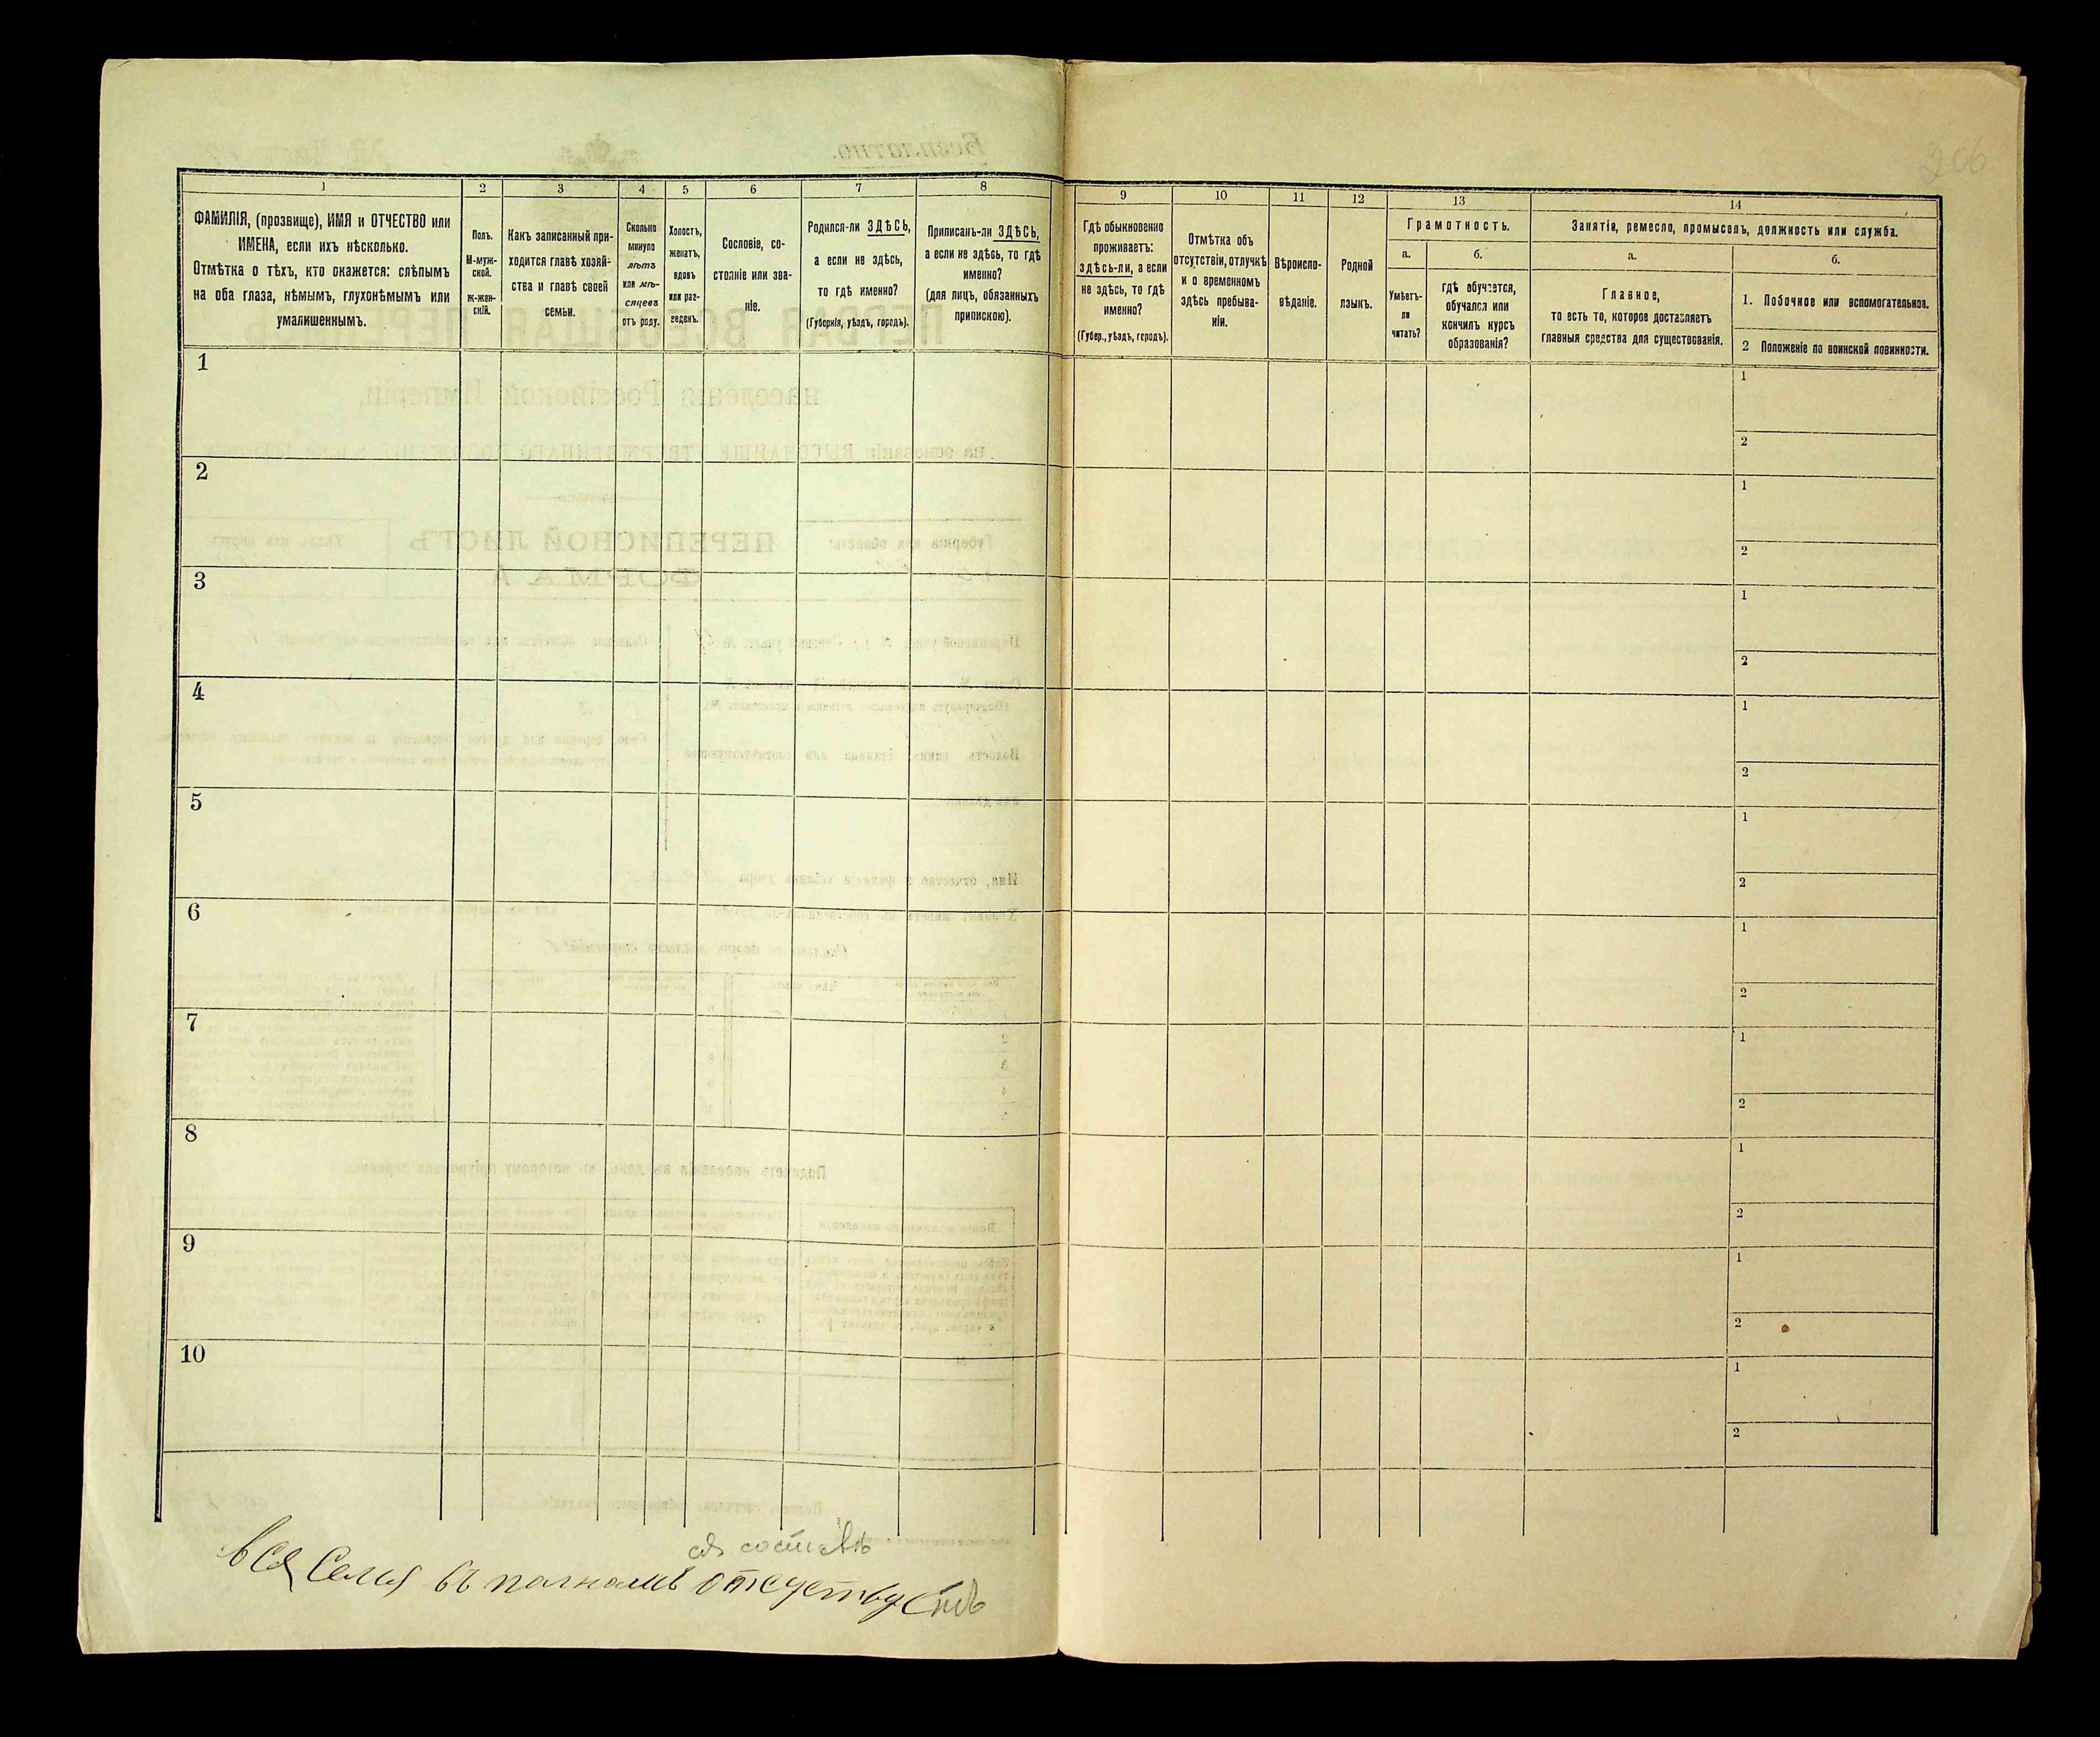 206
1 2 3 4 5 6 7 8 9 10 11 12 13 14
ФАМИЛІЯ, (прозвище), ИМЯ и ОТЧЕСТВО или
ИМЕНА, если ихъ нѣсколько.
Отмѣтка о тѣхъ, кто окажется: слѣпымъ
на оба глаза, нѣмымъ, глухонѣмымъ или
умалишеннымъ.
Полъ.
М-муж-
ской.
ж-жен-
скій.
Какъ записанный при-
ходится главѣ хозяй-
ства и главѣ своей
семьи.
Сколько
минуло
лѣтъ
или мѣ-
сяцевъ
отъ роду.
Холостъ,
женатъ,
вдовъ
или раз-
веденъ.
Сословіе, со-
стояніе или зва-
ніе.
Родился-ли ЗДѢСЬ,
а если не здѣсь,
то гдѣ именно?
(Губернія, уѣздъ, городъ).
Приписанъ-ли ЗДѢСЬ,
а если не здѣсь, то гдѣ
именно?
(для лицъ, обязанныхъ
припискою).
Гдѣ обыкновенно
проживаетъ:
здѣсь-ли, а если
не здѣсь, то гдѣ
именно?
(Губер., уѣздъ, городъ).
Отмѣтка объ
отсутствіи, отлучкѣ
и о временномъ
здѣсь пребыва-
ніи.
Вѣроиспо-
вѣданіе.
Родной
языкъ.
Грамотность.
а.
Умѣетъ-
ли
читать?
б.
гдѣ обучается,
обучался или
кончилъ курсъ
образованія?
Занятіе, ремесло, промыселъ, должность или служба.
а.
Главное,
то есть то, которое доставляетъ
главныя средства для существованія.
б.
1. Побочное или вспомогательное.
2 Положеніе по воинской повинности.
1
1
2
2
1
2
3
1
2
4
1
2
5
1
2
6
1
2
7
1
2
8
1
2
9
1
2
10
1
2
вся Семья въ полномъ отсутству